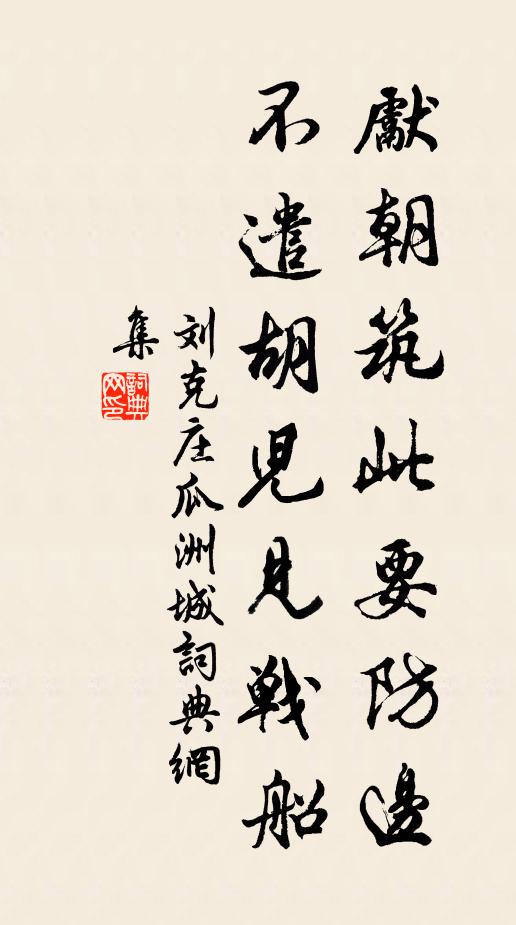 獻朝筑此要防邊
不遣胡兒見戰船
刘克庄瓜洲城詞典網
集
詞典
网印